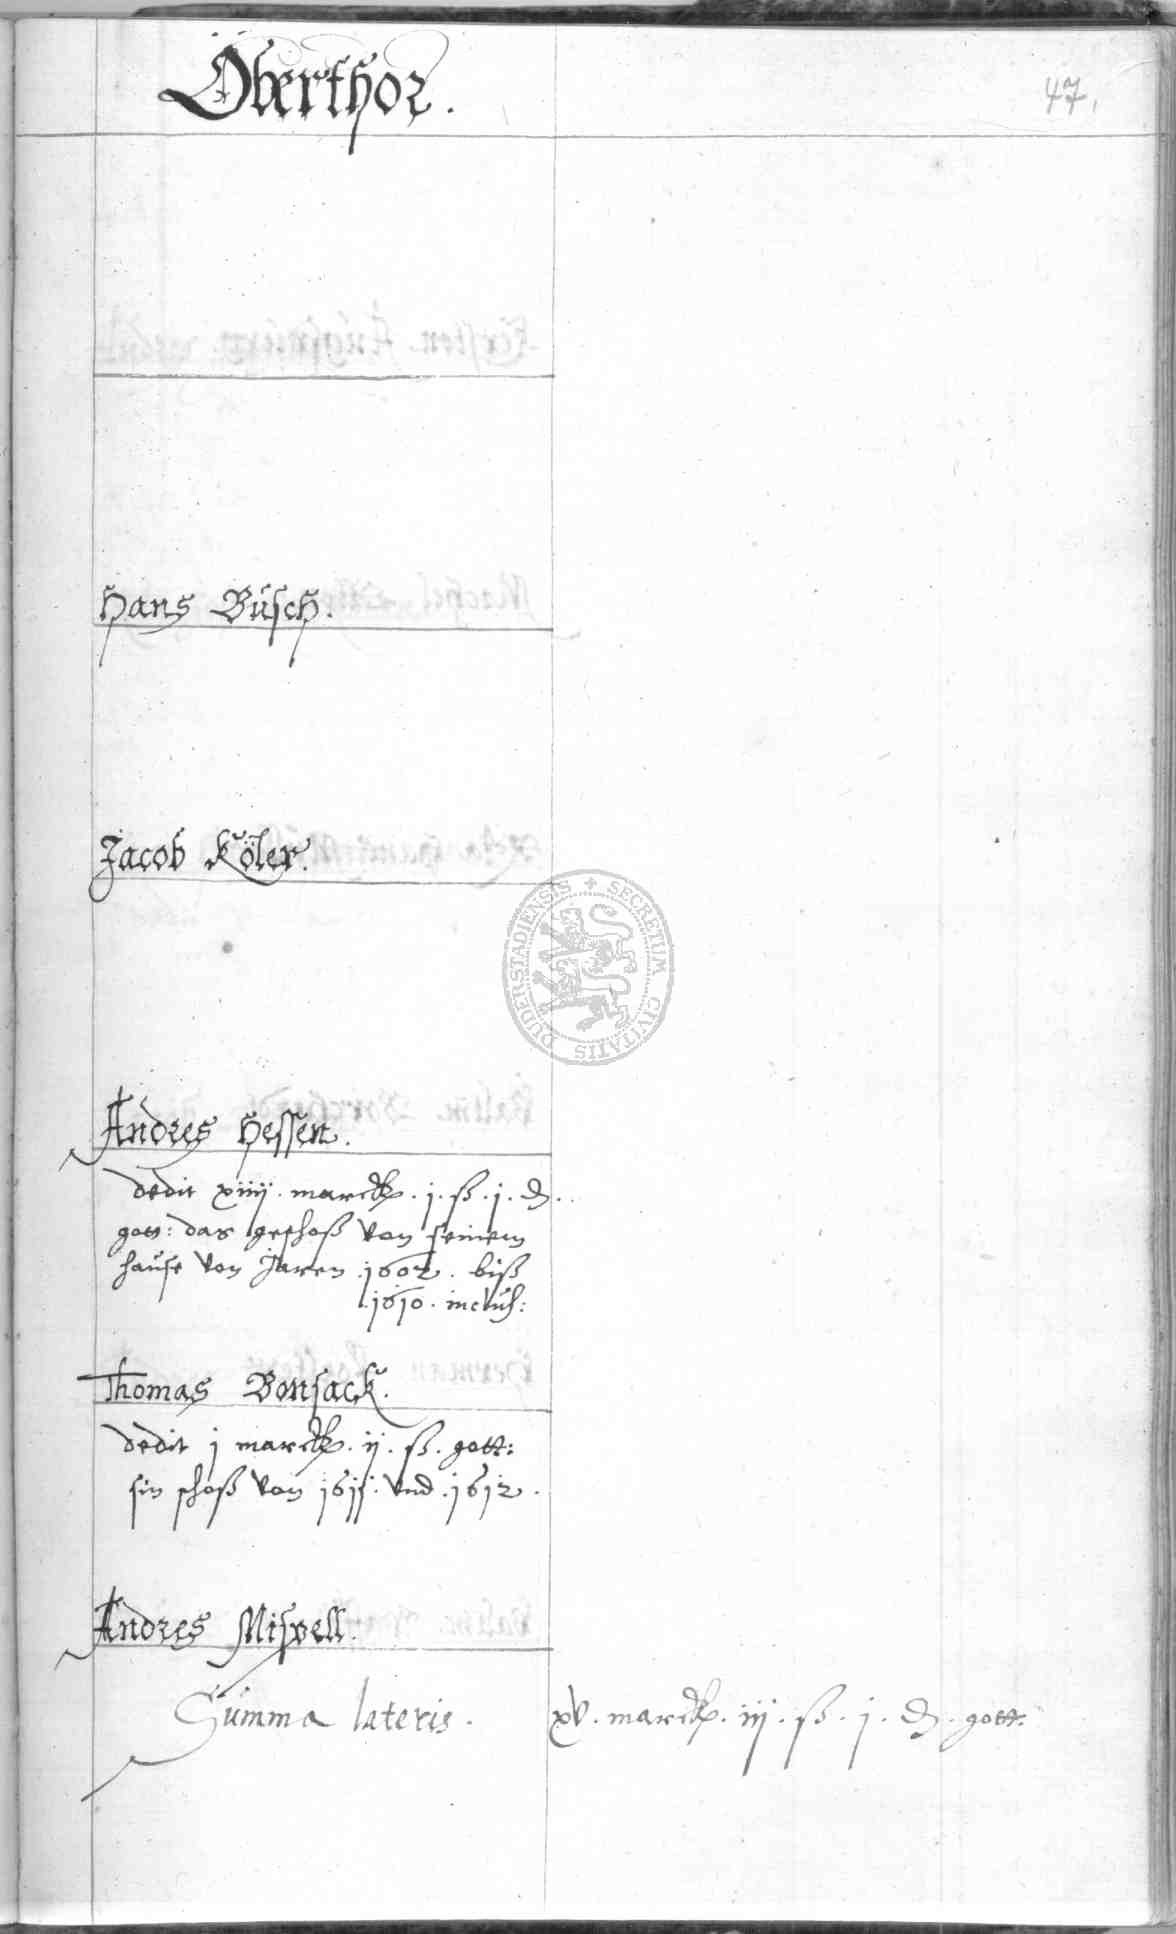 Oberthor.
47.
Hans Busch.
Jacob Köler.
Andres Hessen.
dedit xiiij. marck. j. ß. j. ₰.
gott: das geschoß von seinem
hause von Jaren .1602. biß
.1610. inclus:
Thomas Bonsack.
dedit j marck. ij. ß. gott:
sin schoß von 1611. vnd .1612.
Andres Mispell.
Summa lateris. xv. marck. iij. ß. j. ₰. gott.
SECRETUM CIVITATIS DUDERSTADIENSIS